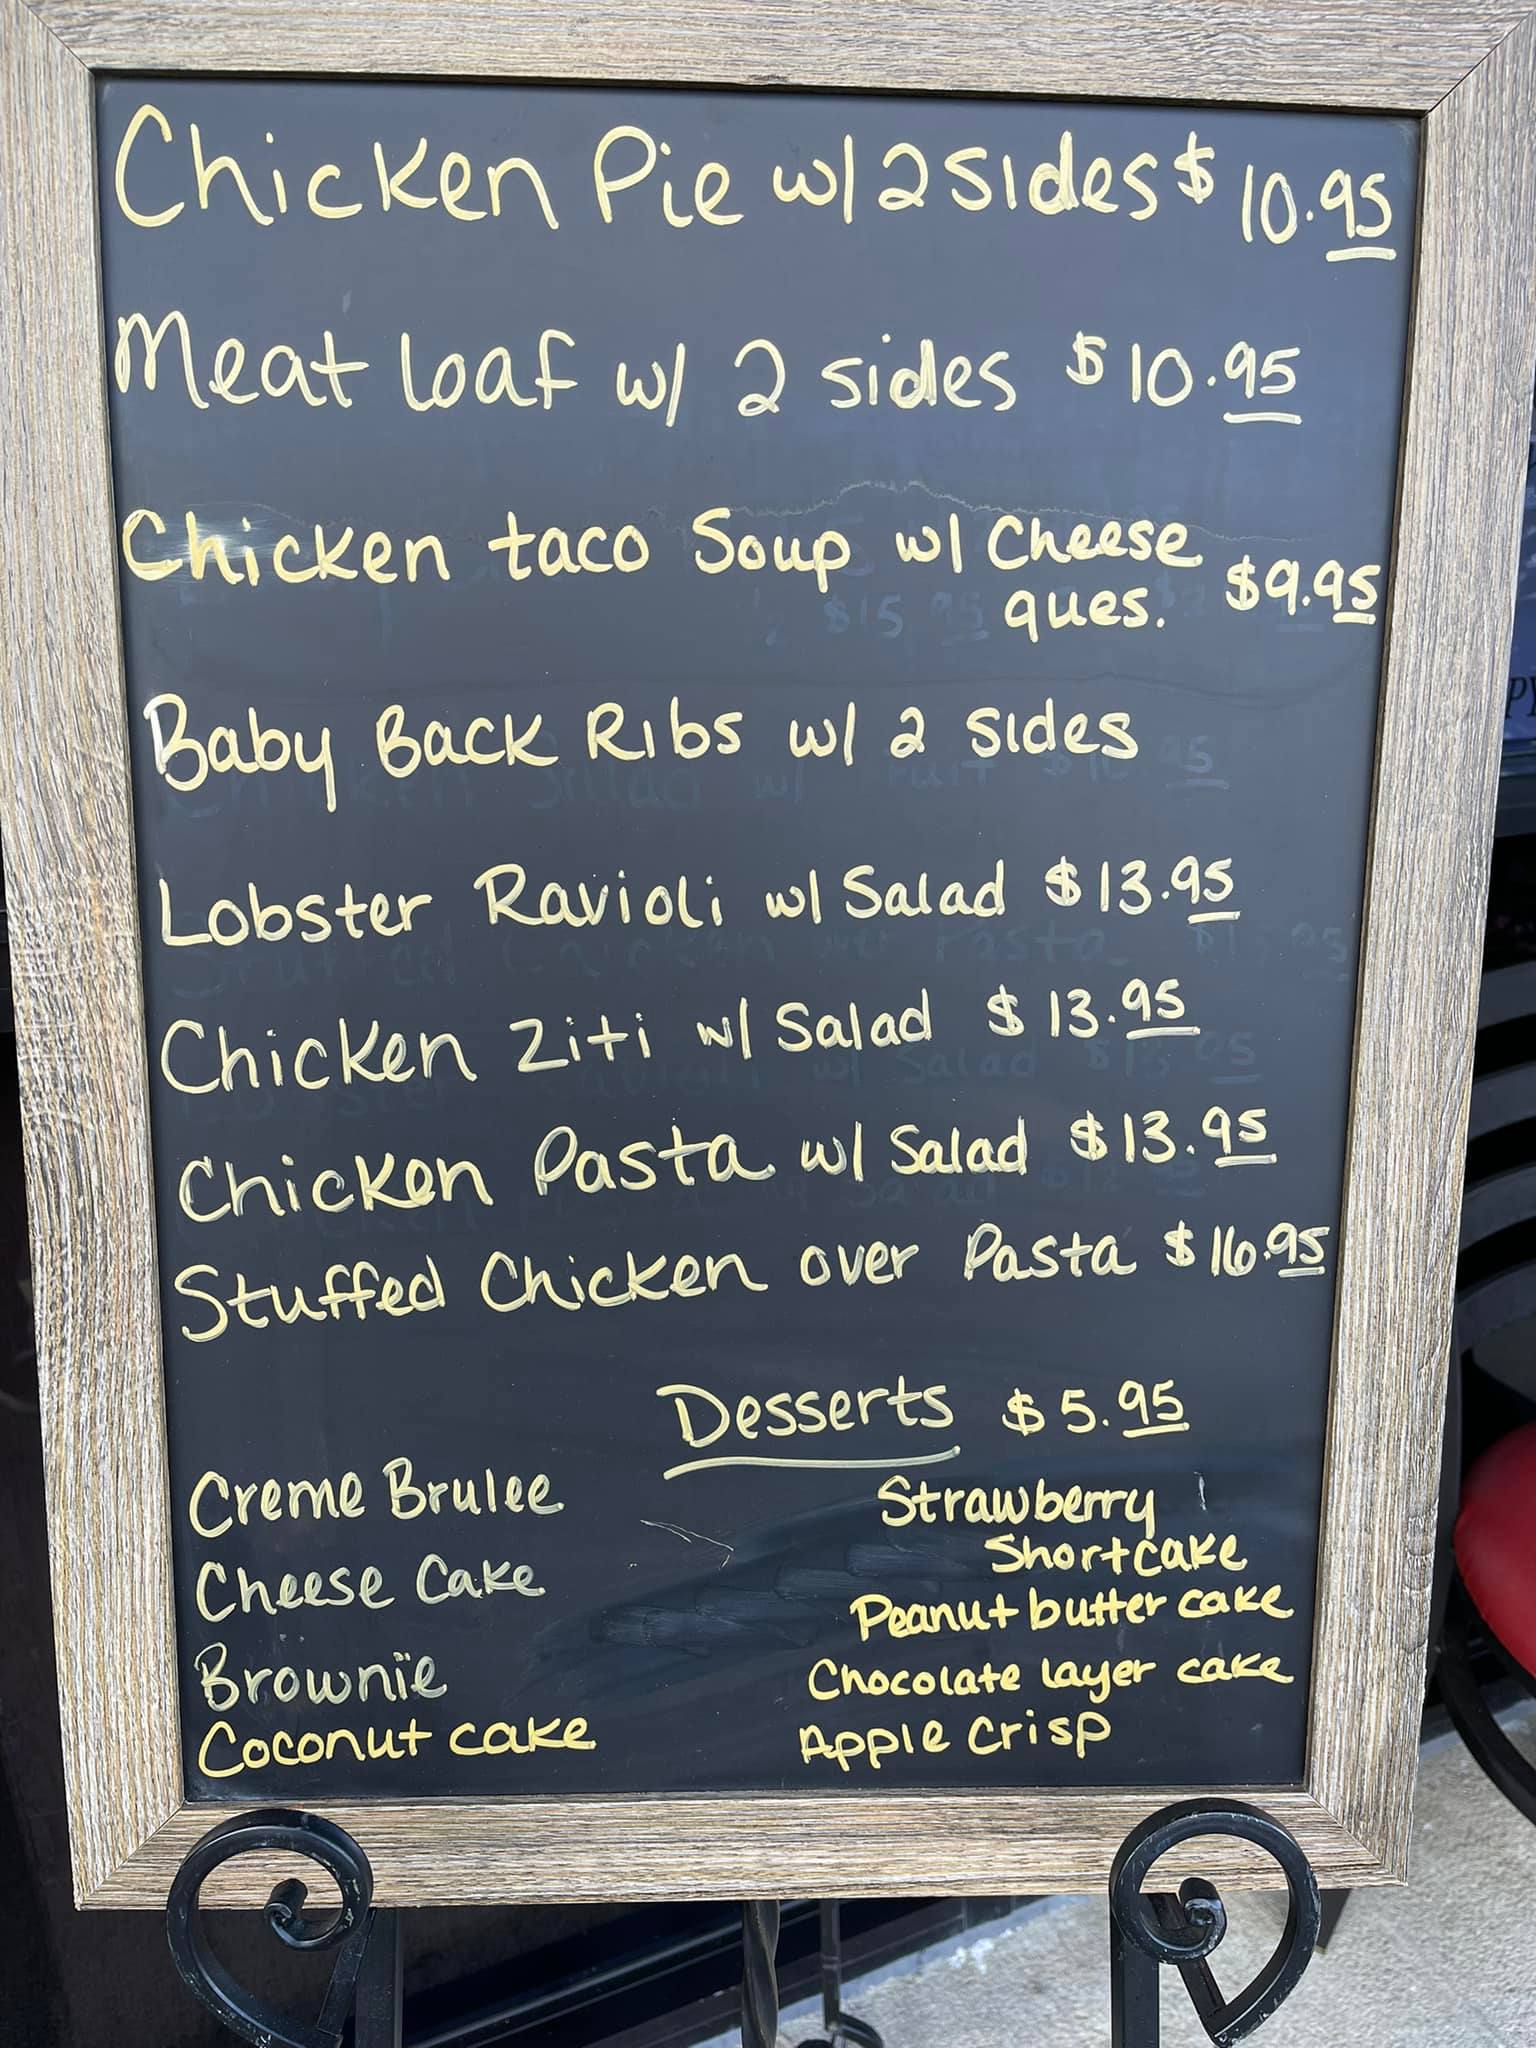 Chicken Pie w/ 2 sides $ 10.95
Meat loaf w/ 2 sides $ 10.95
Chicken taco Soup w/ Cheese
ques. $9.95
Baby Back Ribs w/ 2 sides
Lobster Ravioli w/ Salad $ 13.95
Chicken Ziti w/ Salad $ 13.95
Chicken Pasta w/ Salad $ 13.95
Stuffed Chicken over Pasta $ 16.95
Desserts $ 5.95
Creme Brulee
Cheese Cake
Brownie
Coconut cake
Strawberry
Shortcake
Peanut butter cake
Chocolate layer cake
Apple Crisp